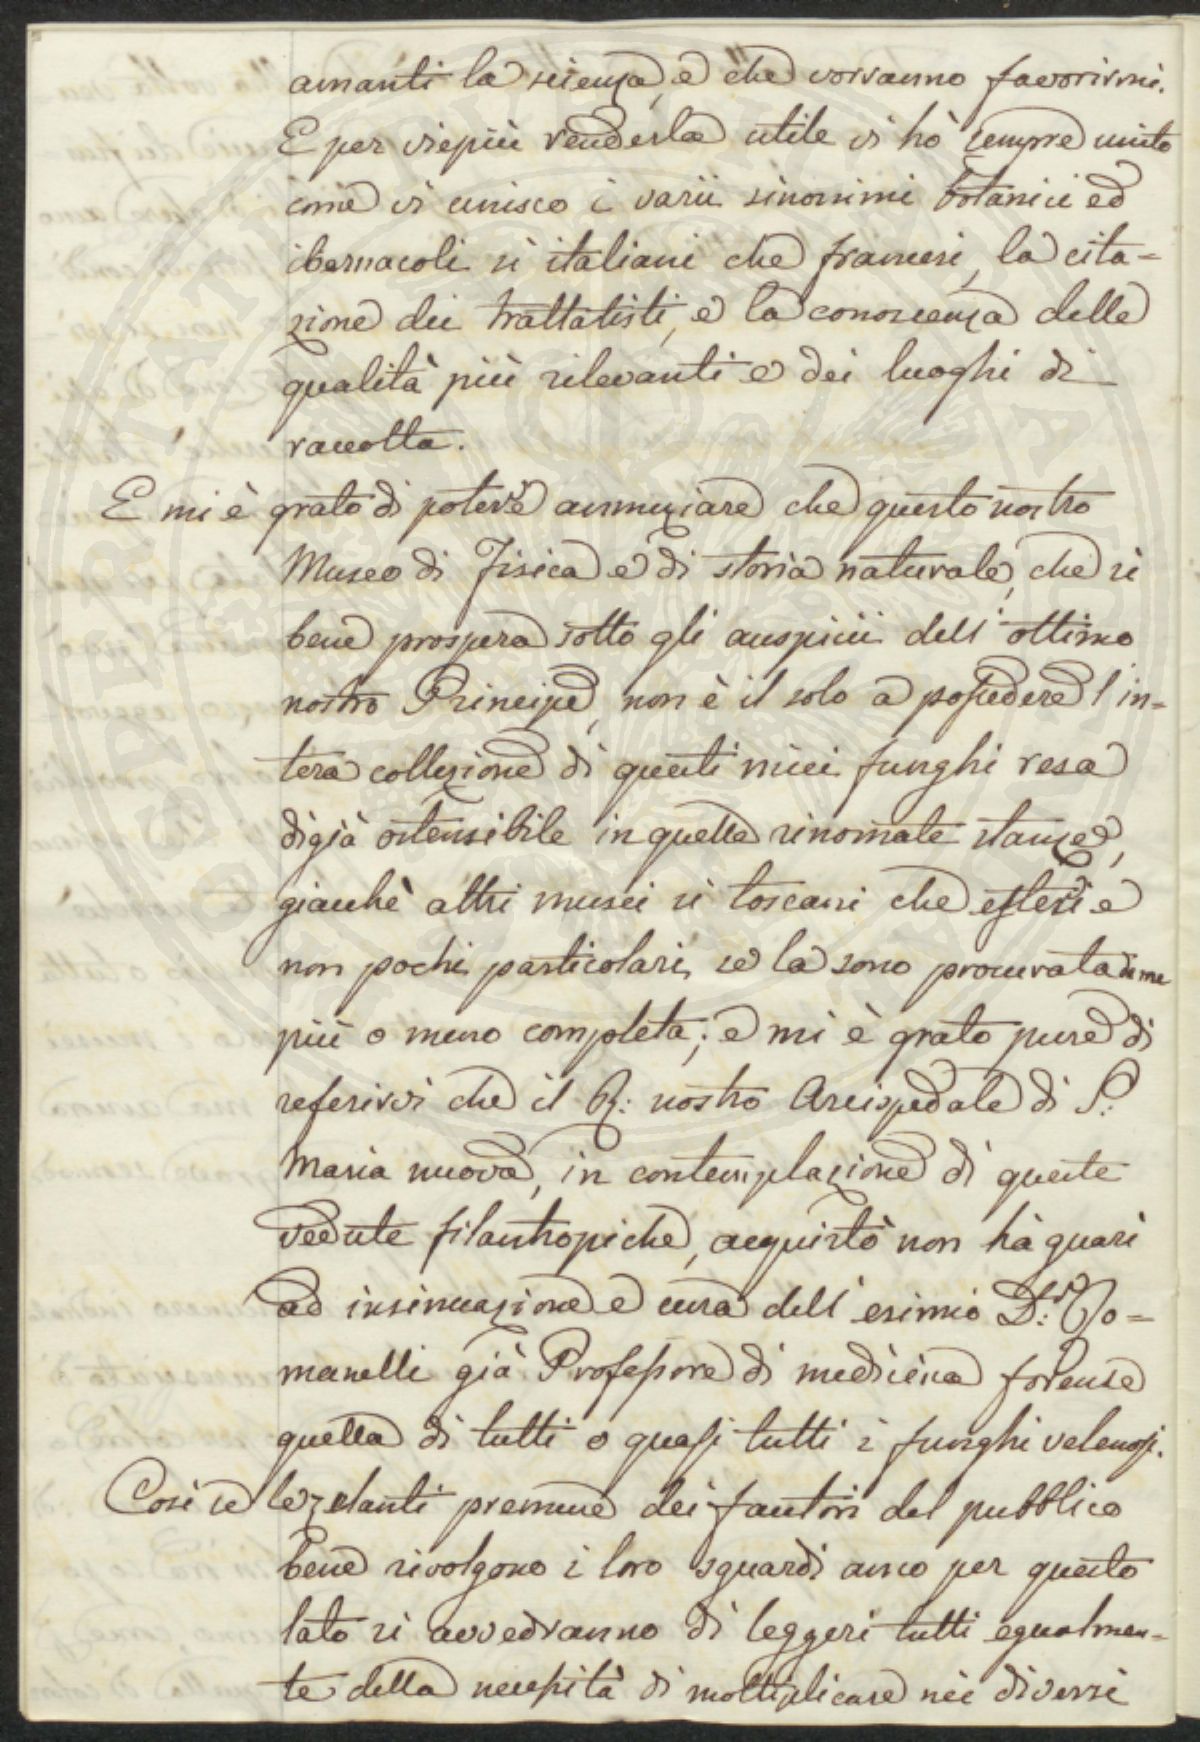 amanti la scienza, e che vorranno favorirmi.
E per viepiù renderla utile vi hò sempre unito
come vi unisco i varii sinonimi botanici ed
ibernacoli sì italiani che francesi, la cita-
zione dei trattatisti, e la conoscenza delle
qualità più rilevanti e dei luoghi di
raccolta.
E mi è grato di poterve annunziare che questo nostro
Museo di Fisica e di storia naturale, che sì
bene prospera sotto gli auspicii dell'ottimo
nostro Principe, non è il solo a possedere l'in-
tera collezione di questi miei funghi resa
digià ostensibile in quelle rinomate stanze,
giacchè altri musei sì toscani che esteri e
non pochi particolari, se la sono procurata da me
più o meno completa; e mi è grato pure di
referirvi che il R: nostro Arcispedale di S:
Maria nuova, in contemplazione di queste
vedute filantropiche, acquistò non hà guari
ad insinuazione e cura dell'esimio D:r Ro=
manelli già Professore di medicina forense
quella di tutti o quasi tutti i funghi velenosi.
Così se le zelanti premure dei fautori del pubblico
bene rivolgono i loro sguardi anco per questo
lato si avvedranno di leggeri tutti egualmen=
te della necessità di moltiplicare nei diversi